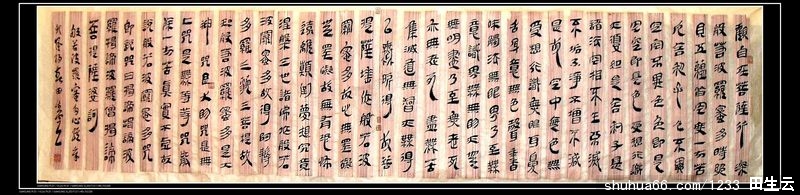 觀自在菩薩行深
般若波羅蜜多時照
見五蘊皆空度一切苦
厄舍利子色不異
空空不異色色即是
空空即是色受想行識
亦復如是舍利子是
諸法空相不生不滅
不垢不淨不增不減
是故空中無色無
受想行識無眼耳鼻
舌身意無色聲香
味觸法無眼界乃至無
意識界無無明亦
無無明盡乃至無老死
亦無老死盡無苦
集滅道無智亦無得
以無所得故菩提
薩埵依般若波
羅蜜多故心無罣
礙無罣礙故無有恐怖
遠離顛倒夢想究竟
涅槃三世諸佛依般若
波羅蜜多故得阿耨
多羅三藐三菩提故
知般若波羅蜜多是大
神咒是大明咒是無
上咒是無等等咒能
除一切苦真實不虛故
說般若波羅蜜多咒
即說咒曰揭諦揭諦波
羅揭諦波羅僧揭諦
菩提薩婆訶
般若波羅蜜多心經
shuhua66.com/1235 田生云